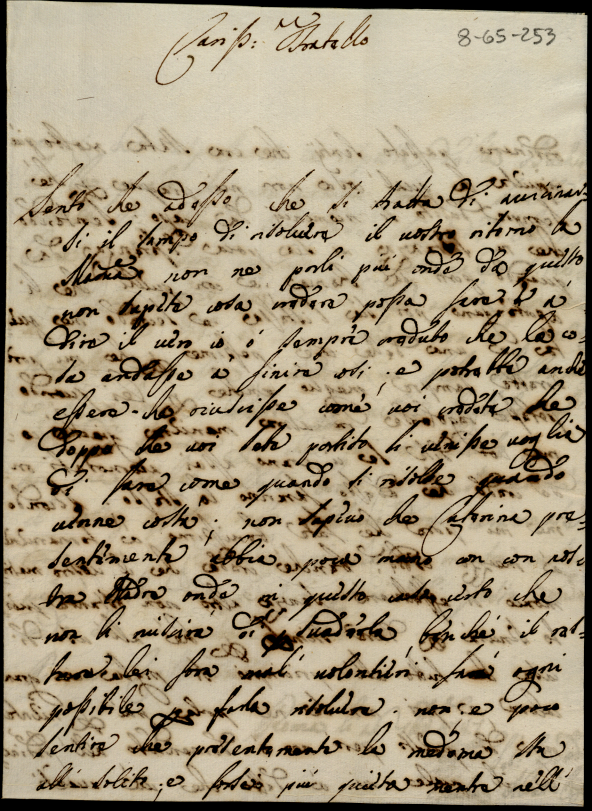 Cariss: Fratello
8-65-253
Sento che adesso che si tratta di avicinar
si il tempo di risolvere il vostro ritorno la
non ne parli più onde da questo
non sapete cosa credere possa fare è à
dire il vero io ó sempre creduto che la co-
sa andasse à finire così, e potrebbe anche
essere che riuscisse come voi credete che
doppo che voi sete partito li venisse voglia
di fare come quando si risolse quando
venne costà; non sapevo che Caterina pre-
sentemente abbia poca mano con con vos-
tra Madre onde in questo caso certo che
non li riuscirà di suaderla benche il
lei farà volontieri farà ogni
possibile farla risolvere. non è poco
sentire che presentemente la medema stia
al solito, e forse più quieta mentre nell'